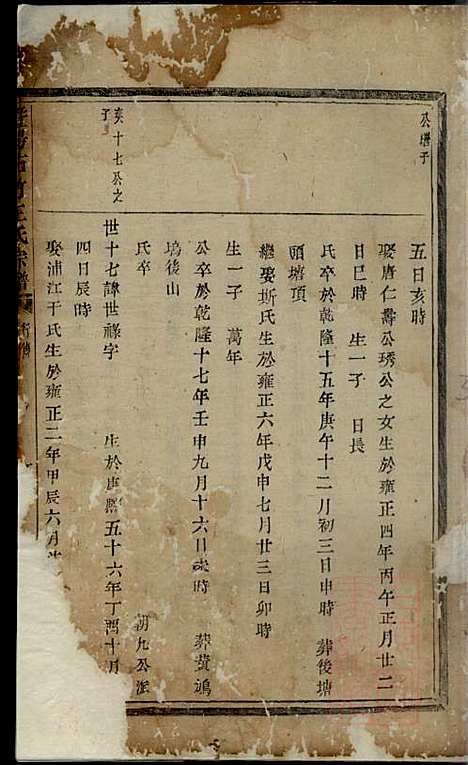 公增子
五日亥時
娶唐仁壽公琇公之女生於雍正四年丙午正月廿二
日巳時 生一子 日長
氏卒於乾隆十五年庚午十二月初三日申時 葬後塘
頭塘頂
繼娶斯氏生於雍正六年戊申七月廿三日卯時
生一子 萬年
公卒於乾隆十七年壬申九月十六日 時 葬黃鴻
塢後山
氏卒
亥十七公之
子
世十七諱世祿字 生於康熙五十六年丁酉十月
四日辰時
娶浦江于氏生於雍正二年甲辰六月
王氏宗譜